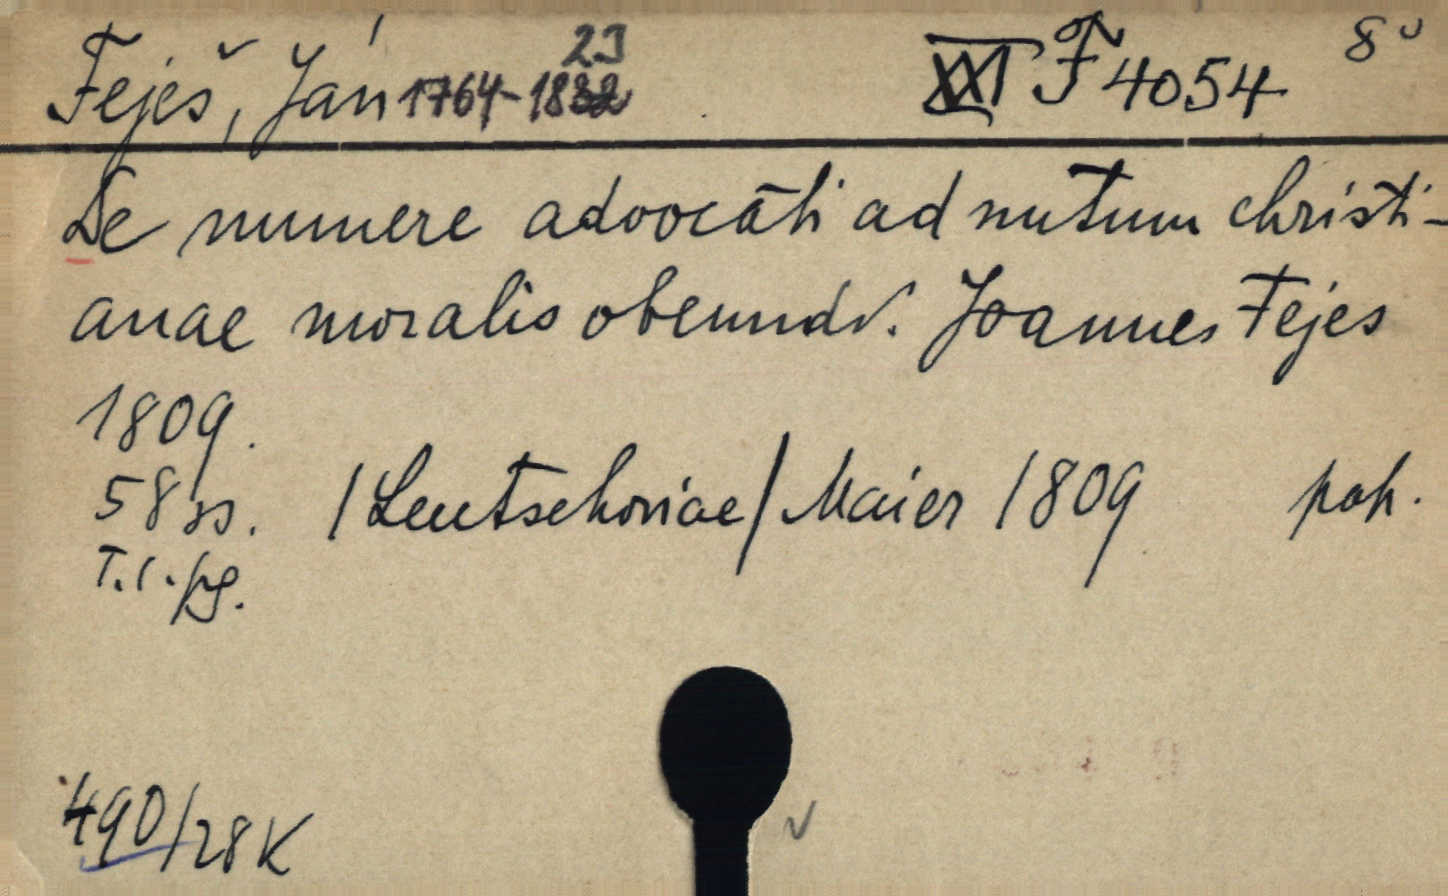 Feješ, Ján 1764-1832 23 XXI F 4054 8°
De numere advocati ad nutum christi-
anae moralis obeundo. Joannes Fejes
1809.
58 ss. /Leutschoviae/ Maier 1809
T.l.pg.
490/28K